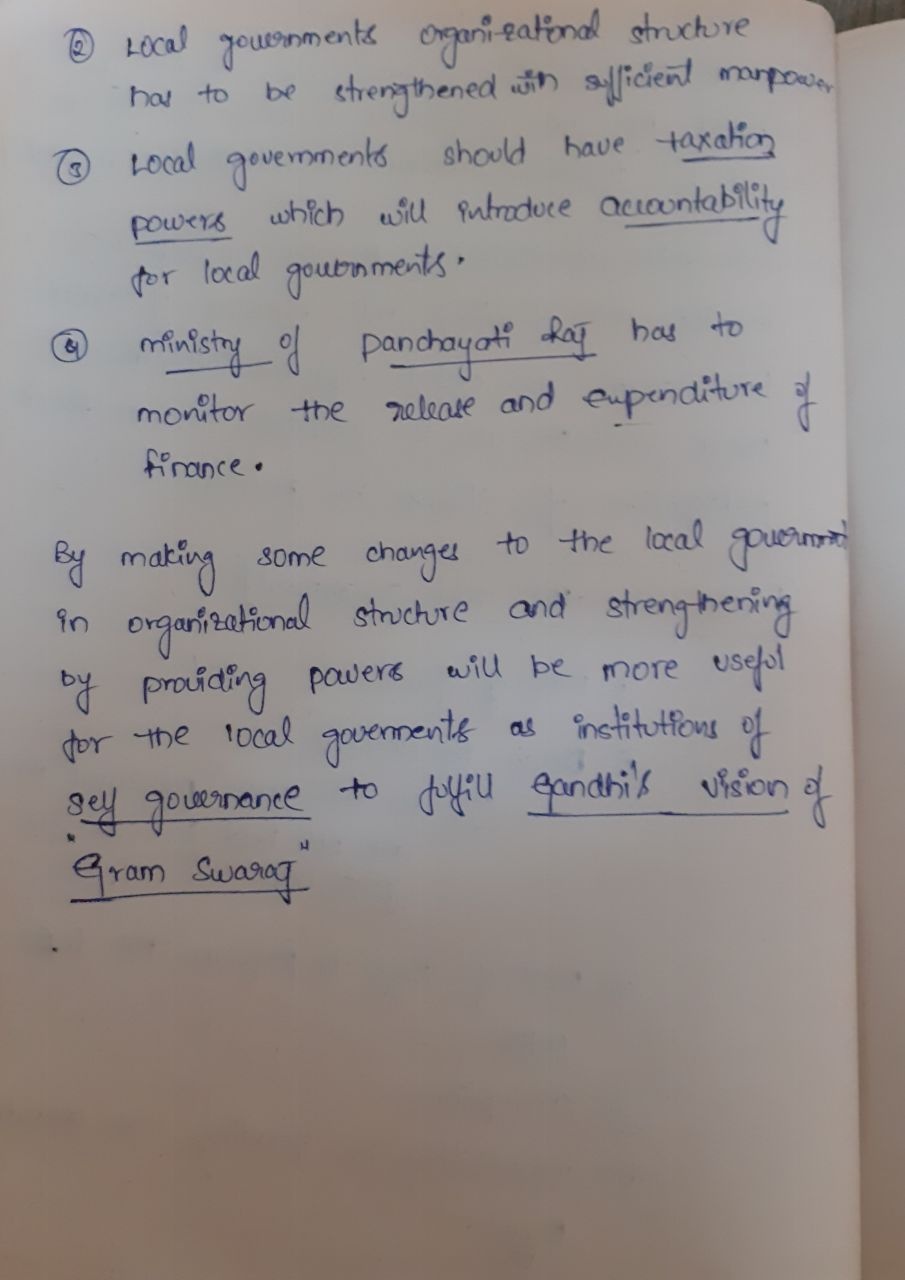 ② Local governments organizational structure
has to be strengthened with sufficient manpower
③ Local governments should have taxation
powers which will introduce accountability
for local governments.
④ ministry of Panchayati Raj has to
monitor the release and expenditure of
finance.
By making some changes to the local government
in organizational structure and strengthening
by providing powers will be more useful
for the local governments as institutions of
self governance to fulfill Gandhi's vision of
"Gram Swaraj"